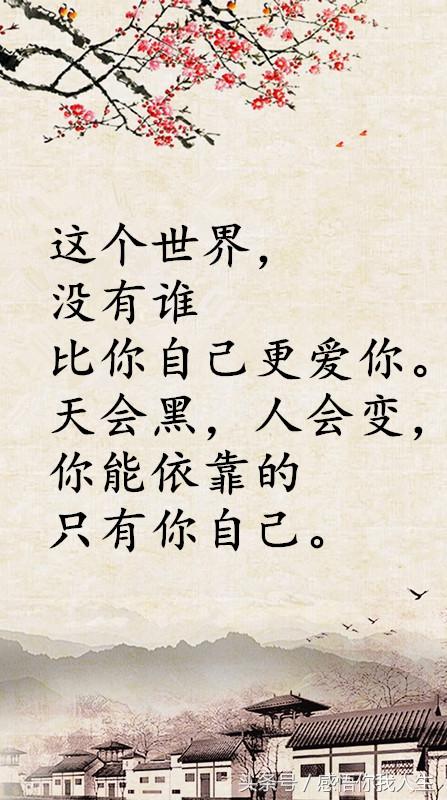 这个世界，
没有谁
比你自己更爱你。
天会黑，人会变，
你能依靠的
只有你自己。
头条号 / 感悟你我人生